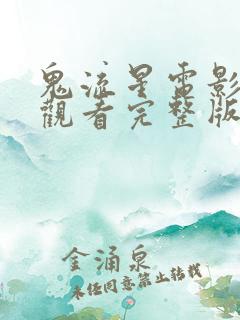 鬼流星電影
觀看完整版
金涌泉
未任同意禁止转载